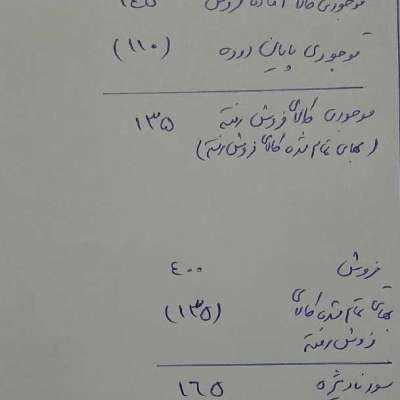 موجودی کالای آماده فروش
موجودی پایان دوره (۱۱۰)
موجودی کالای فروش رفته ۱۳۵
(بهای تمام شده کالای فروش رفته)
فروش ۴۰۰
بهای تمام شده کالای (۱۳۵)
فروش رفته
سود ناویژه ۱۶۵